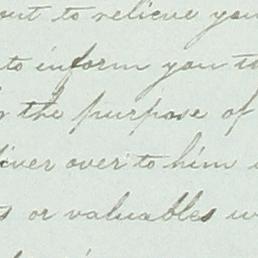 out to relieve you
to inform you th
the purpose of
liver over to him
or valuables w